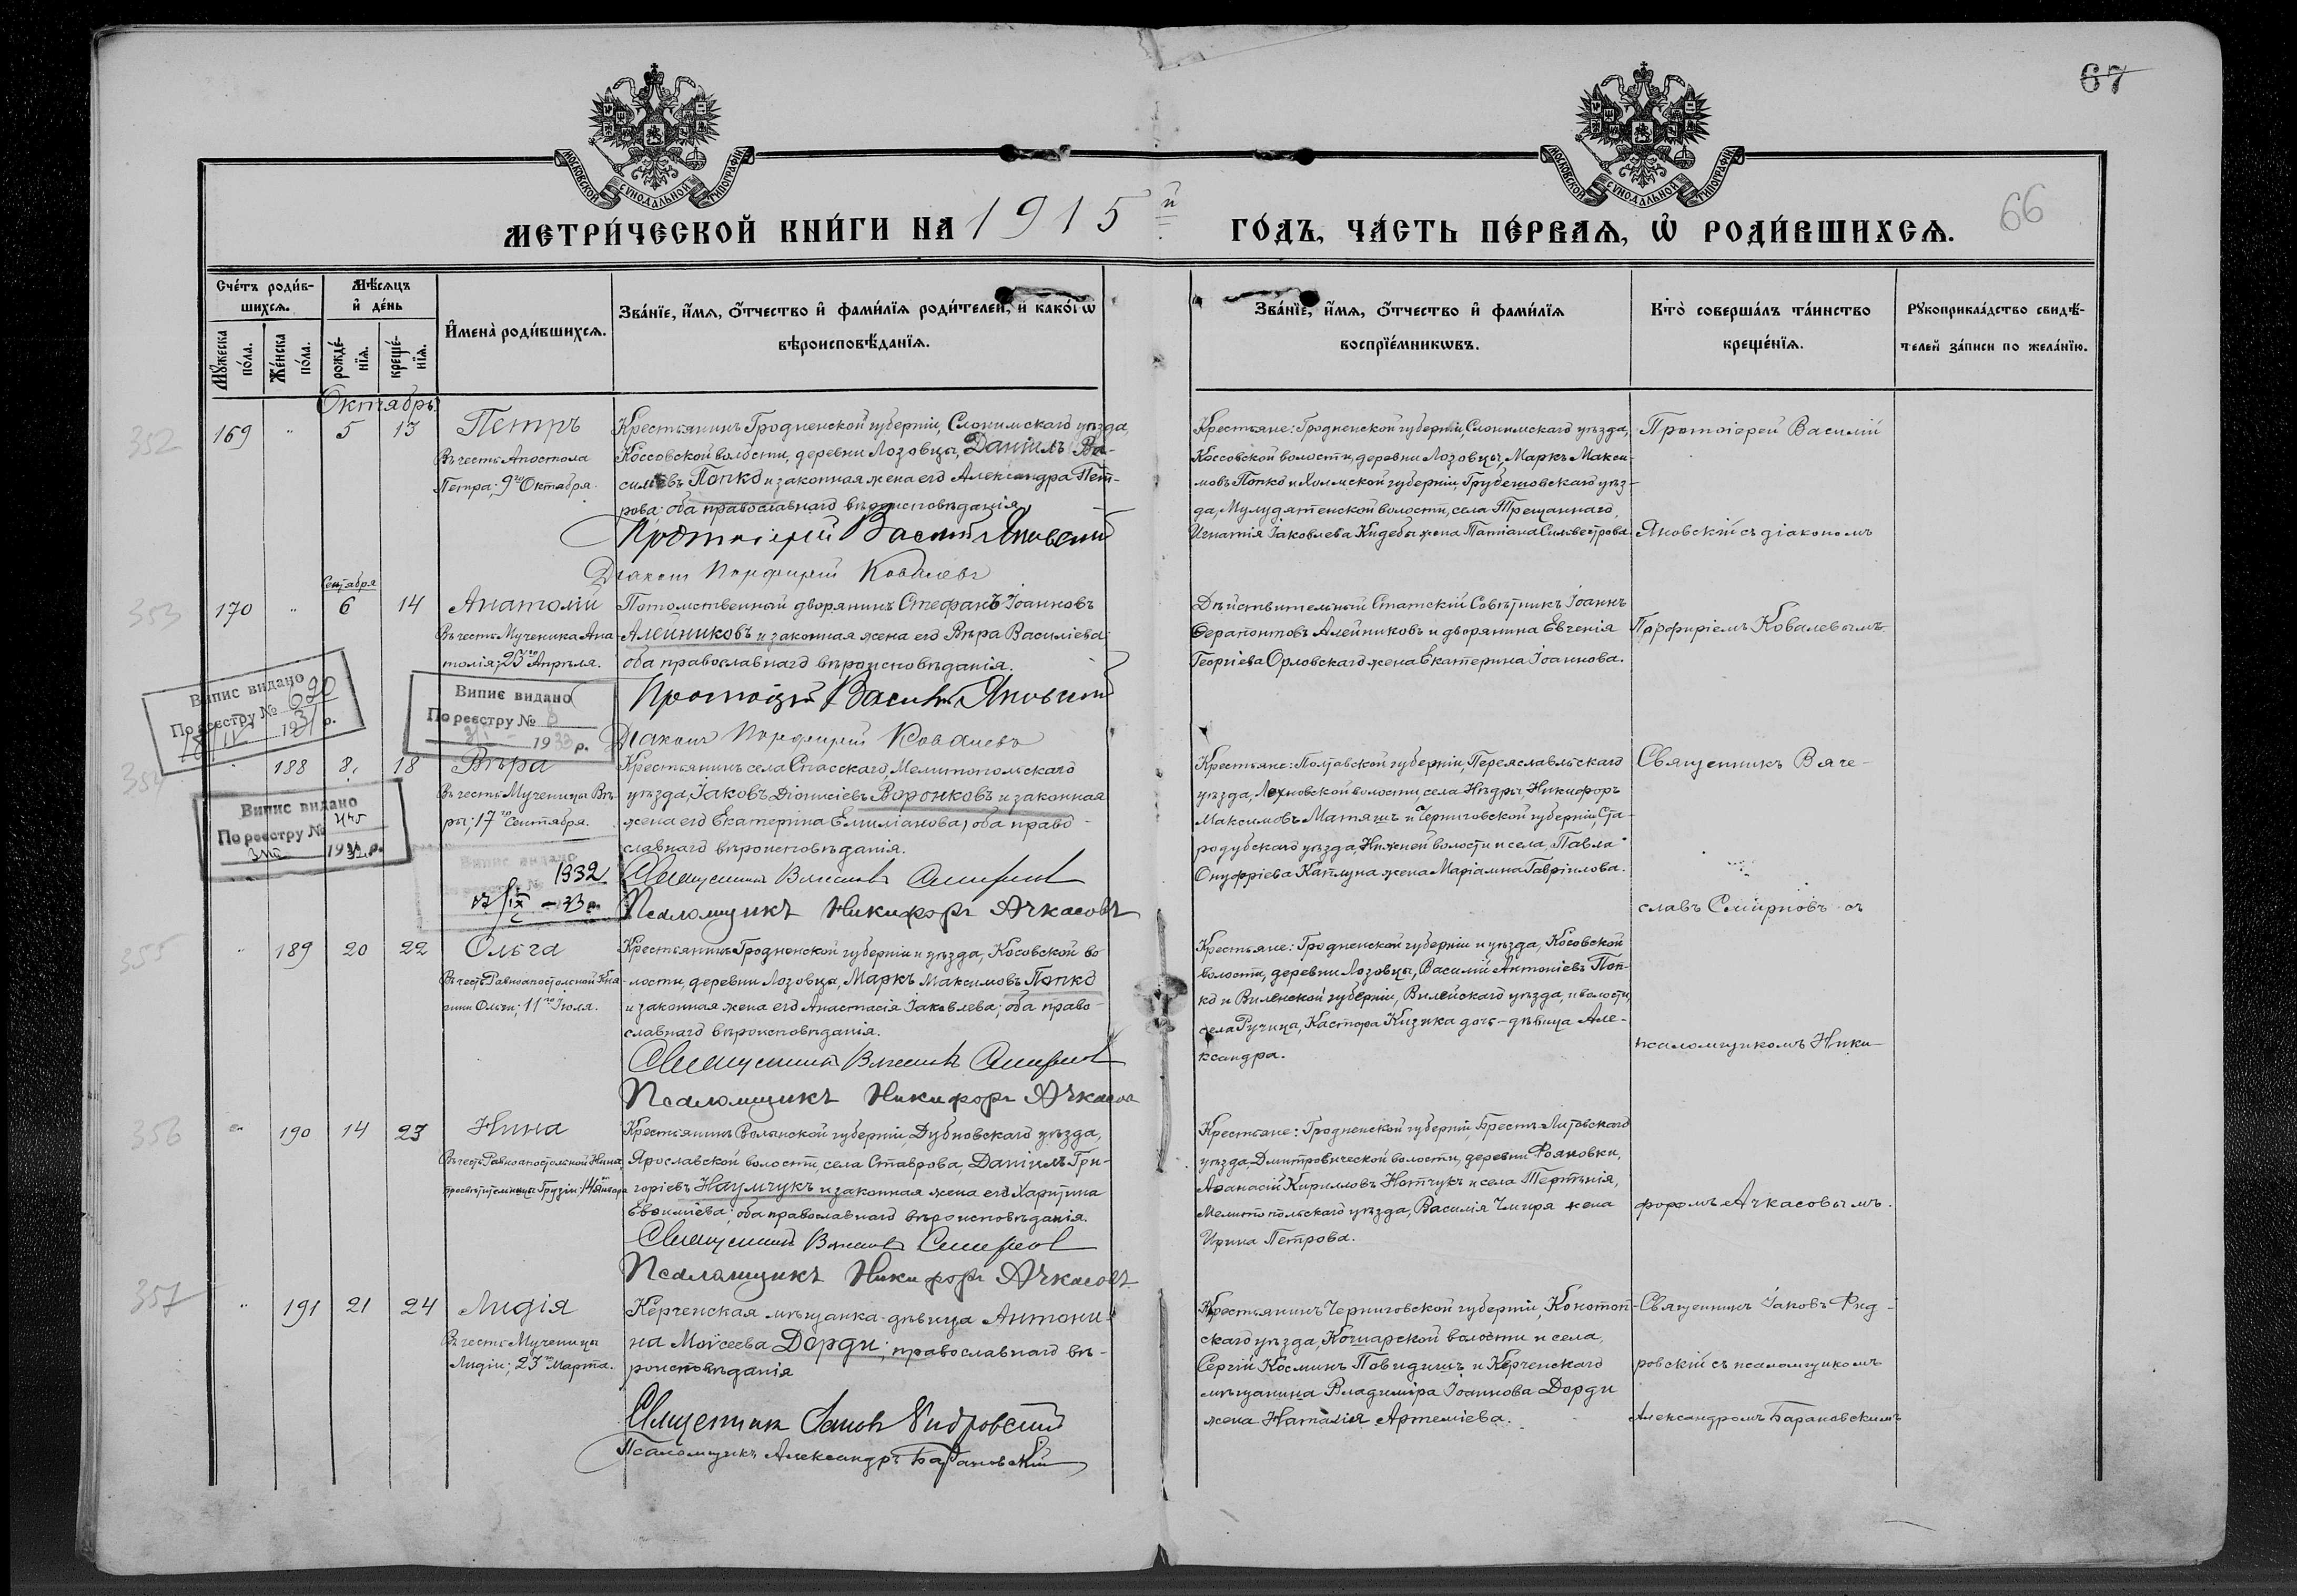 67
66
МОСКОВСКОЙ СУНОДАЛЬНОЙ ТИПОГРАФІИ
МОСКОВСКОЙ СУНОДАЛЬНОЙ ТИПОГРАФІИ
МЕТРИ́ЧЕСКОЙ КНИ́ГИ НА 1915й ГО́ДЪ, ЧА́СТЬ ПЕ́РВАѦ, Ѡ҆ РОДИ́ВШИХСѦ.
Сче́тъ роди́в-
шихсѧ.
Мꙋ́жеска по́ла.
Же́нска по́ла.
Мѣ́сѧцъ
и҆ де́нь
рожде́-нїѧ.
креще́-нїѧ.
И҆мена̀ роди́вшихсѧ.
Зва́нїе, и҆́мѧ, ѻ҆́тчество и҆ фами́лїѧ роди́телей, и҆ како́гѡ
вѣроисповѣ́данїѧ.
Зва́нїе, и҆́мѧ, ѻ҆́тчество и҆ фами́лїѧ
воспрїе́мникѡвъ.
Кто̀ соверша́лъ та́инство
креще́нїѧ.
Рꙋкоприкла́дство свидѣ́-
телей за́писи по жела́нїю.
Октябрь
352
169 " 5 13 Петръ
Въ честь Апостола
Петра; 9го Октября.
Крестьянинъ Гродненской губерніи, Слонимскаго уѣзда,
Коссовской волости, деревни Лозовцы, Даніилъ Ва-
сильевъ Попко и законная жена его Александра Пет-
рова; оба православнаго вѣроисповѣданія.
Протоіерей Василій Яновскій
Діаконъ Порфирій Ковалевъ
Крестьяне: Гродненской губерніи, Слонимскаго уѣзда,
Коссовской волости, деревни Лозовцы, Маркъ Макси-
мовъ Попко и Холмской губерніи, Грубешовскаго уѣз-
да, волости, села
Игнатія Іаковлева жена Татіана Сильвестрова.
Протоіерей Василій
Яновскій съ діакономъ
353
Сентября
170 " 6 14 Анатолій
Въ честь Мученика Ана-
толія; 23го Апрѣля.
Потомственный дворянинъ Стефанъ Іоанновъ
Алейниковъ и законная жена его Вѣра Василіева;
оба православнаго вѣроисповѣданія.
Протоіерей Василій Яновскій
Діаконъ Порфирій Ковалевъ
Дѣйствительный Статскій Совѣтникъ Іоаннъ
Ѳерапонтовъ Алейниковъ и дворянина Евгенія
Георгіева Орловскаго жена Екатерина Іоаннова.
Порфиріемъ Ковалевымъ.
Випис видано
По реестру № 690
1931 р.
Випис видано
По реестру № 8
1933 р.
354
" 188 8 18 Вѣра
Въ честь Мученицы Вѣ-
ры; 17го Сентября.
Крестьянинъ села Спасскаго, Мелитопольскаго
уѣзда, Іаковъ Діонисіевъ Воронковъ и законная
жена его Екатерина Емиліанова; оба право-
славнаго вѣроисповѣданія.
Священникъ Вячеславъ Смирновъ
Псаломщикъ Никифоръ Ачкасовъ
Крестьяне: Полтавской губерніи, Переяславльскаго
уѣзда, волости, села Нѣдры, Никифоръ
Максимовъ Матяшъ и Черниговской губерніи, Ста-
родубскаго уѣзда, волости и села, Павла
Онуфріева Каплуна жена Маріамна Гавріилова.
Священникъ Вяче-
славъ Смирновъ съ
Випис видано
По реестру №
193 р.
Випис видано
1932
355
" 189 20 22 Ольга
Въ честь Равноапостольной Кня-
гини Ольги; 11го Іюля.
Крестьянинъ Гродненской губерніи и уѣзда, Косовской во-
лости, деревни Лозовцы, Маркъ Максимовъ Попко
и законная жена его Анастасія Іаковлева; оба право-
славнаго вѣроисповѣданія.
Священникъ Вячеславъ Смирновъ
Псаломщикъ Никифоръ Ачкасовъ
Крестьяне: Гродненской губерніи и уѣзда, Косовской
волости, деревни Лозовцы, Василій Антоніевъ Поп-
ко и Виленской губерніи, Вилейскаго уѣзда, и волости,
села Ручица, Кастора Кизика дочь-дѣвица Але-
ксандра.
псаломщикомъ Ники-
356
" 190 14 23 Нина
Въ честь Равноапостольной Нины,
просвѣтительницы Грузіи; 14го Января
Крестьянинъ Волынской губерніи, Дубновскаго уѣзда,
Ярославской волости, села Ставрова, Даніилъ Гри-
горіевъ Наумчукъ и законная жена его Харитина
Евѳиміева; оба православнаго вѣроисповѣданія.
Священникъ Вячеславъ Смирновъ
Псаломщикъ Никифоръ Ачкасовъ
Крестьяне: Гродненской губерніи, Брестъ-Литовскаго
уѣзда, Дмитровической волости, деревни
Аѳанасій Кирилловъ и села Терпѣнія,
Мелитопольскаго уѣзда, Василія Чмиря жена
Ирина Петрова.
форомъ Ачкасовымъ.
357
" 191 21 24 Лидія
Въ честь Мученицы
Лидіи; 23го Марта.
Керченская мѣщанка-дѣвица Антони-
на Моисеева Дорди; православнаго вѣ-
роисповѣданія
Священникъ Іаковъ Фидровскій
Псаломщикъ Александръ Барановскій
Крестьянинъ Черниговской губерніи, Конотоп-
скаго уѣзда, волости и села,
Сергій Косминъ и Керченскаго
мѣщанина Владиміра Іоаннова Дорди
жена Наталія Артеміева.
Священникъ Іаковъ Фид-
ровскій съ псаломщикомъ
Александромъ Барановскимъ